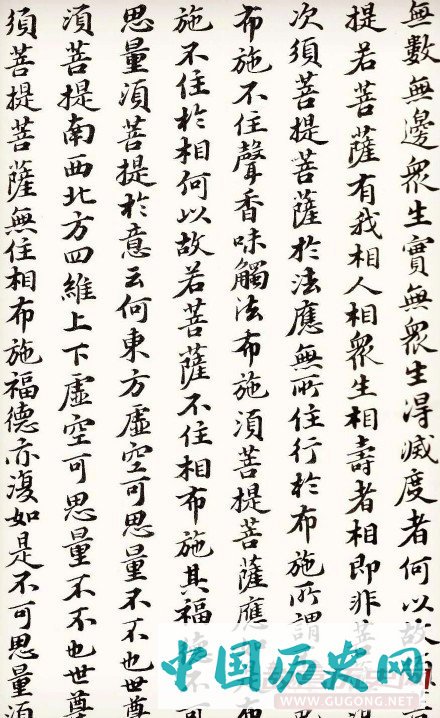 無數無邊衆生實無衆生得滅度者何以故
提若菩薩有我相人相衆生相壽者相即非菩
次須菩提菩薩於法應無所住行於布施所謂
布施不住聲香味觸法布施須菩提菩薩應
施不住於相何以故若菩薩不住相布施其福德不可
思量須菩提於意云何東方虛空可思量不不也世尊
須菩提南西北方四維上下虛空可思量不不也世尊
須菩提菩薩無住相布施福德亦復如是不可思量須
中国历史网
WWW.GUGONG.NET